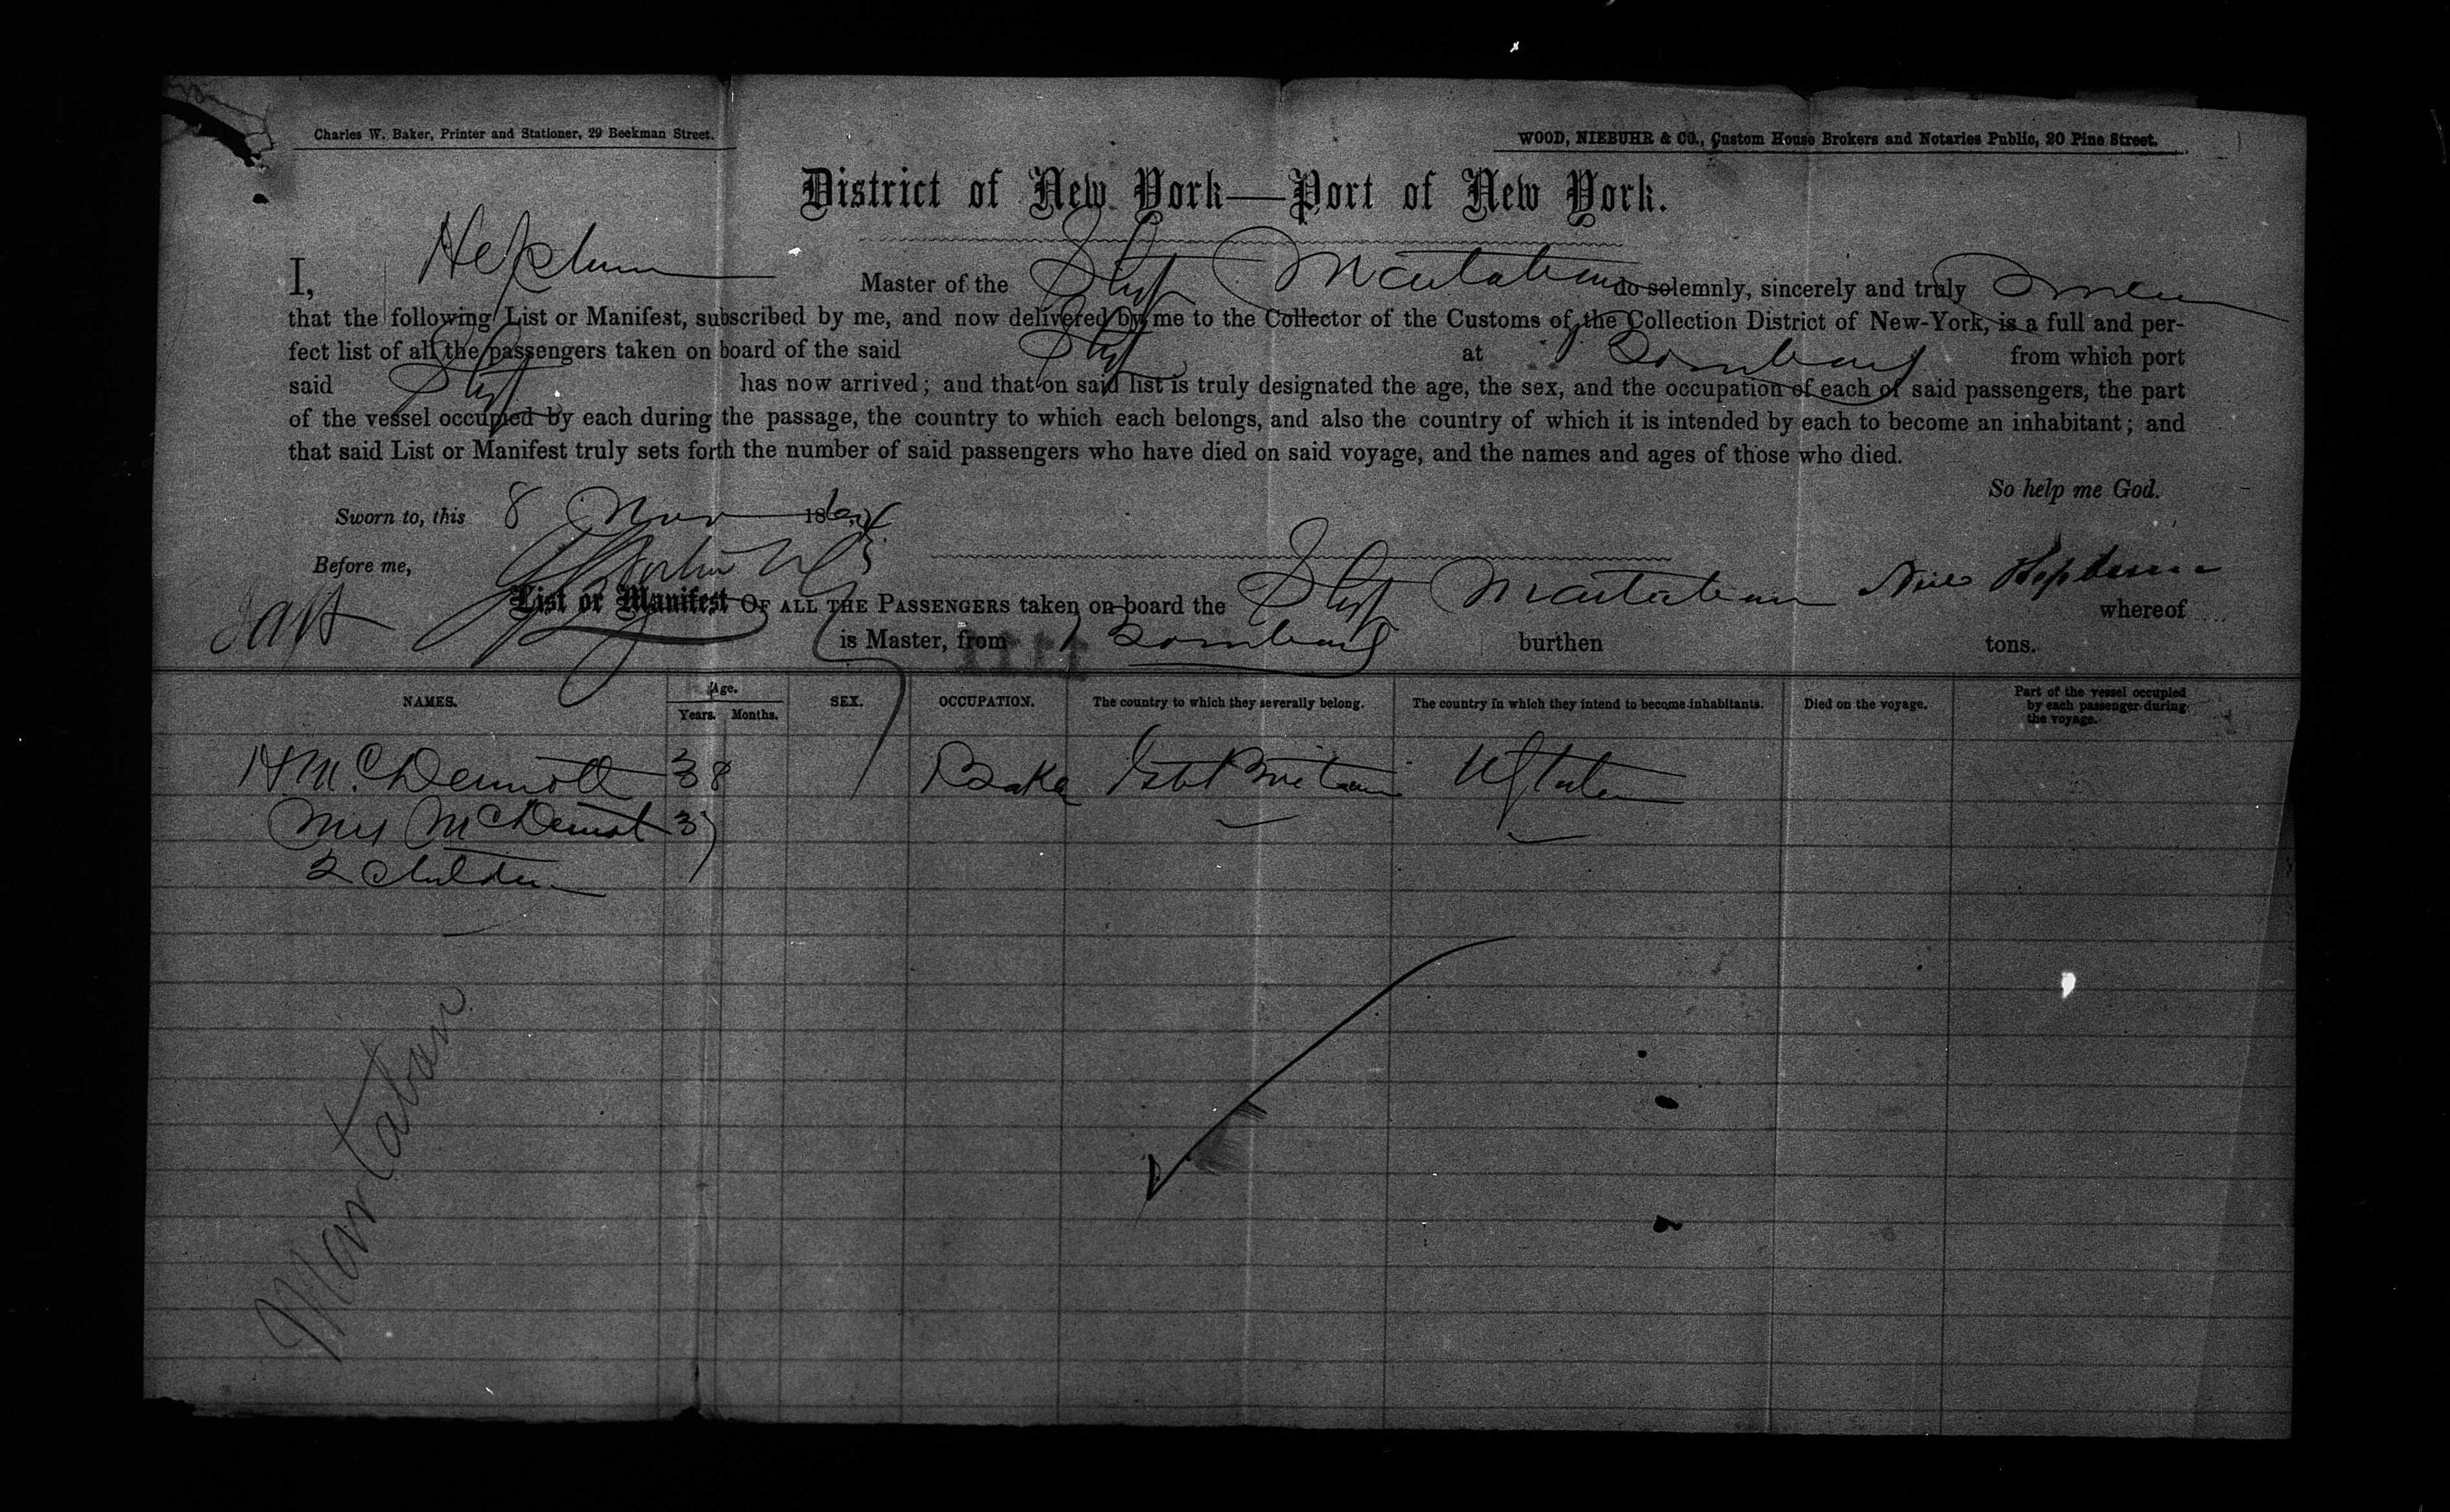 Charles W. Baker, Printer and Stationer, 29 Beekman Street.
WOOD, NIEBUHR & CO., Custom House Brokers and Notaries Public, 20 Pine Street.
District of New York—Port of New York.
I, Hepburn Master of the Ship Martaban do solemnly, sincerely and truly swear
that the following List or Manifest, subscribed by me, and now delivered by me to the Collector of the Customs of the Collection District of New-York, is a full and per-
fect list of all the passengers taken on board of the said Ship at Bombay from which port
said Ship has now arrived; and that on said list is truly designated the age, the sex, and the occupation of each of said passengers, the part
of the vessel occupied by each during the passage, the country to which each belongs, and also the country of which it is intended by each to become an inhabitant; and
that said List or Manifest truly sets forth the number of said passengers who have died on said voyage, and the names and ages of those who died.
So help me God.
Sworn to, this 8 Nov 186
Before me,
List or Manifest OF ALL THE PASSENGERS taken on board the Ship Martaban Hepburn whereof
is Master, from Bombay burthen tons.
NAMES.
Age.
Years. Months.
SEX.
OCCUPATION.
The country to which they severally belong.
The country in which they intend to become inhabitants.
Died on the voyage.
Part of the vessel occupied
by each passenger during
the voyage.
H. McDermott 38 Baker Gt Britain U States
Mrs McDermot 37
2 Children
Martaban